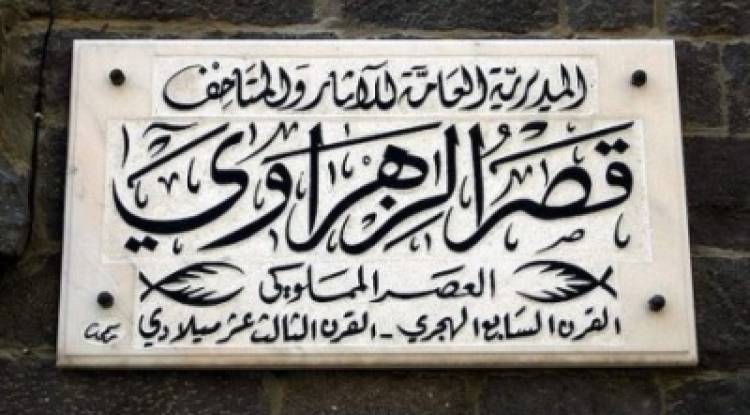 المديرية العامة للآثار والمتاحف
قصر الزهراوي
العصر المملوكي
القرن السابع الهجري - القرن الثالث عشر ميلادي